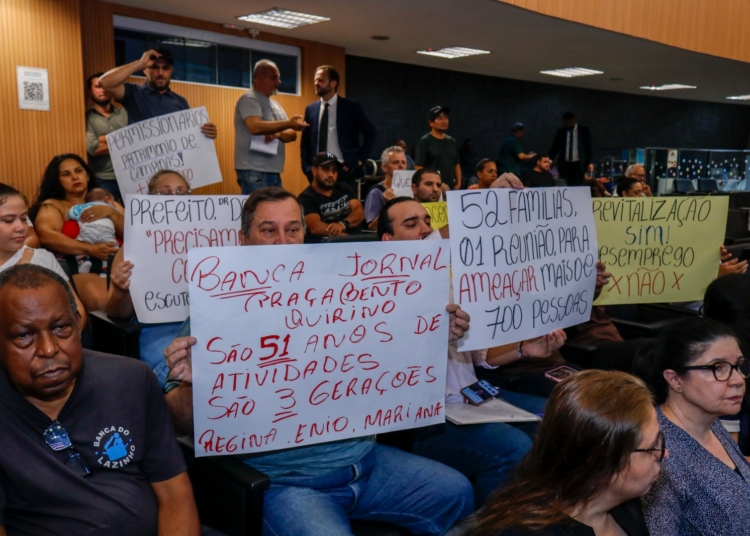 PERMISSIONÁRIOS
PATRIMÔNIO DE
CAMPINAS!
PREFEITO, DR D
"PRECISAM
BANCA JORNAL
PRAÇA BENTO
QUIRINO
SÃO 51 ANOS DE
ATIVIDADES
SÃO 3 GERAÇÕES
REGINA. ENIO. MARIANA
QUE
52 FAMÍLIAS,
01 REUNIÃO, PARA
AMEAÇAR MAIS DE
700 PESSOAS
REVITALIZAÇÃO
SIM!
DESEMPREGO
X NÃO X
BANCA DO
LAZINHO